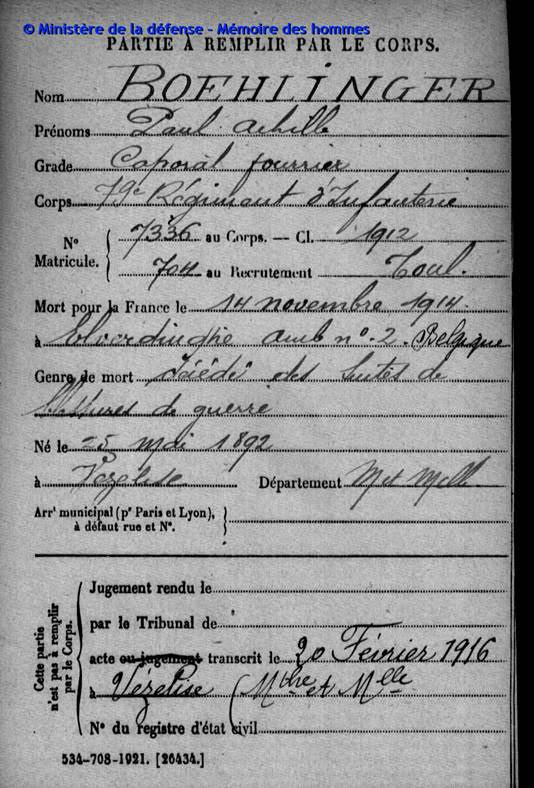 © Ministère de la défense - Mémoire des hommes
PARTIE À REMPLIR PAR LE CORPS.
Nom BOEHLINGER
Prénoms Paul Achille
Grade Caporal fourrier
Corps 79e Régiment d'Infanterie
N° Matricule. 7336 au Corps. — Cl. 1912
704 au Recrutement Toul.
Mort pour la France le 14 novembre 1914.
à Elverdinghe amb n°. 2. Belgique
Genre de mort Décédé des suites de
blessures de guerre
Né le 25 mai 1892
à Vezelise Département Mt Mlle
Arrt municipal (pr Paris et Lyon),
à défaut rue et N°.
Cette partie n'est pas à remplir par le Corps.
Jugement rendu le
par le Tribunal de
acte ou jugement transcrit le 20 Février 1916
à Vézelise (Mthe et Mlle
N° du registre d'état civil
534-708-1921. [26434.]